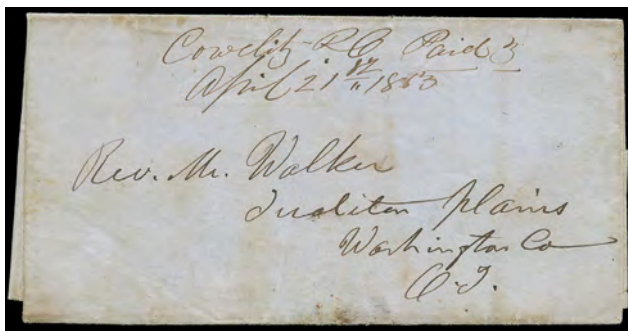 Cowlitz P.O. Paid 3
April 21st 1853
Rev. Mr. Walker
Tualiten Plains
Washington Co
O.T.